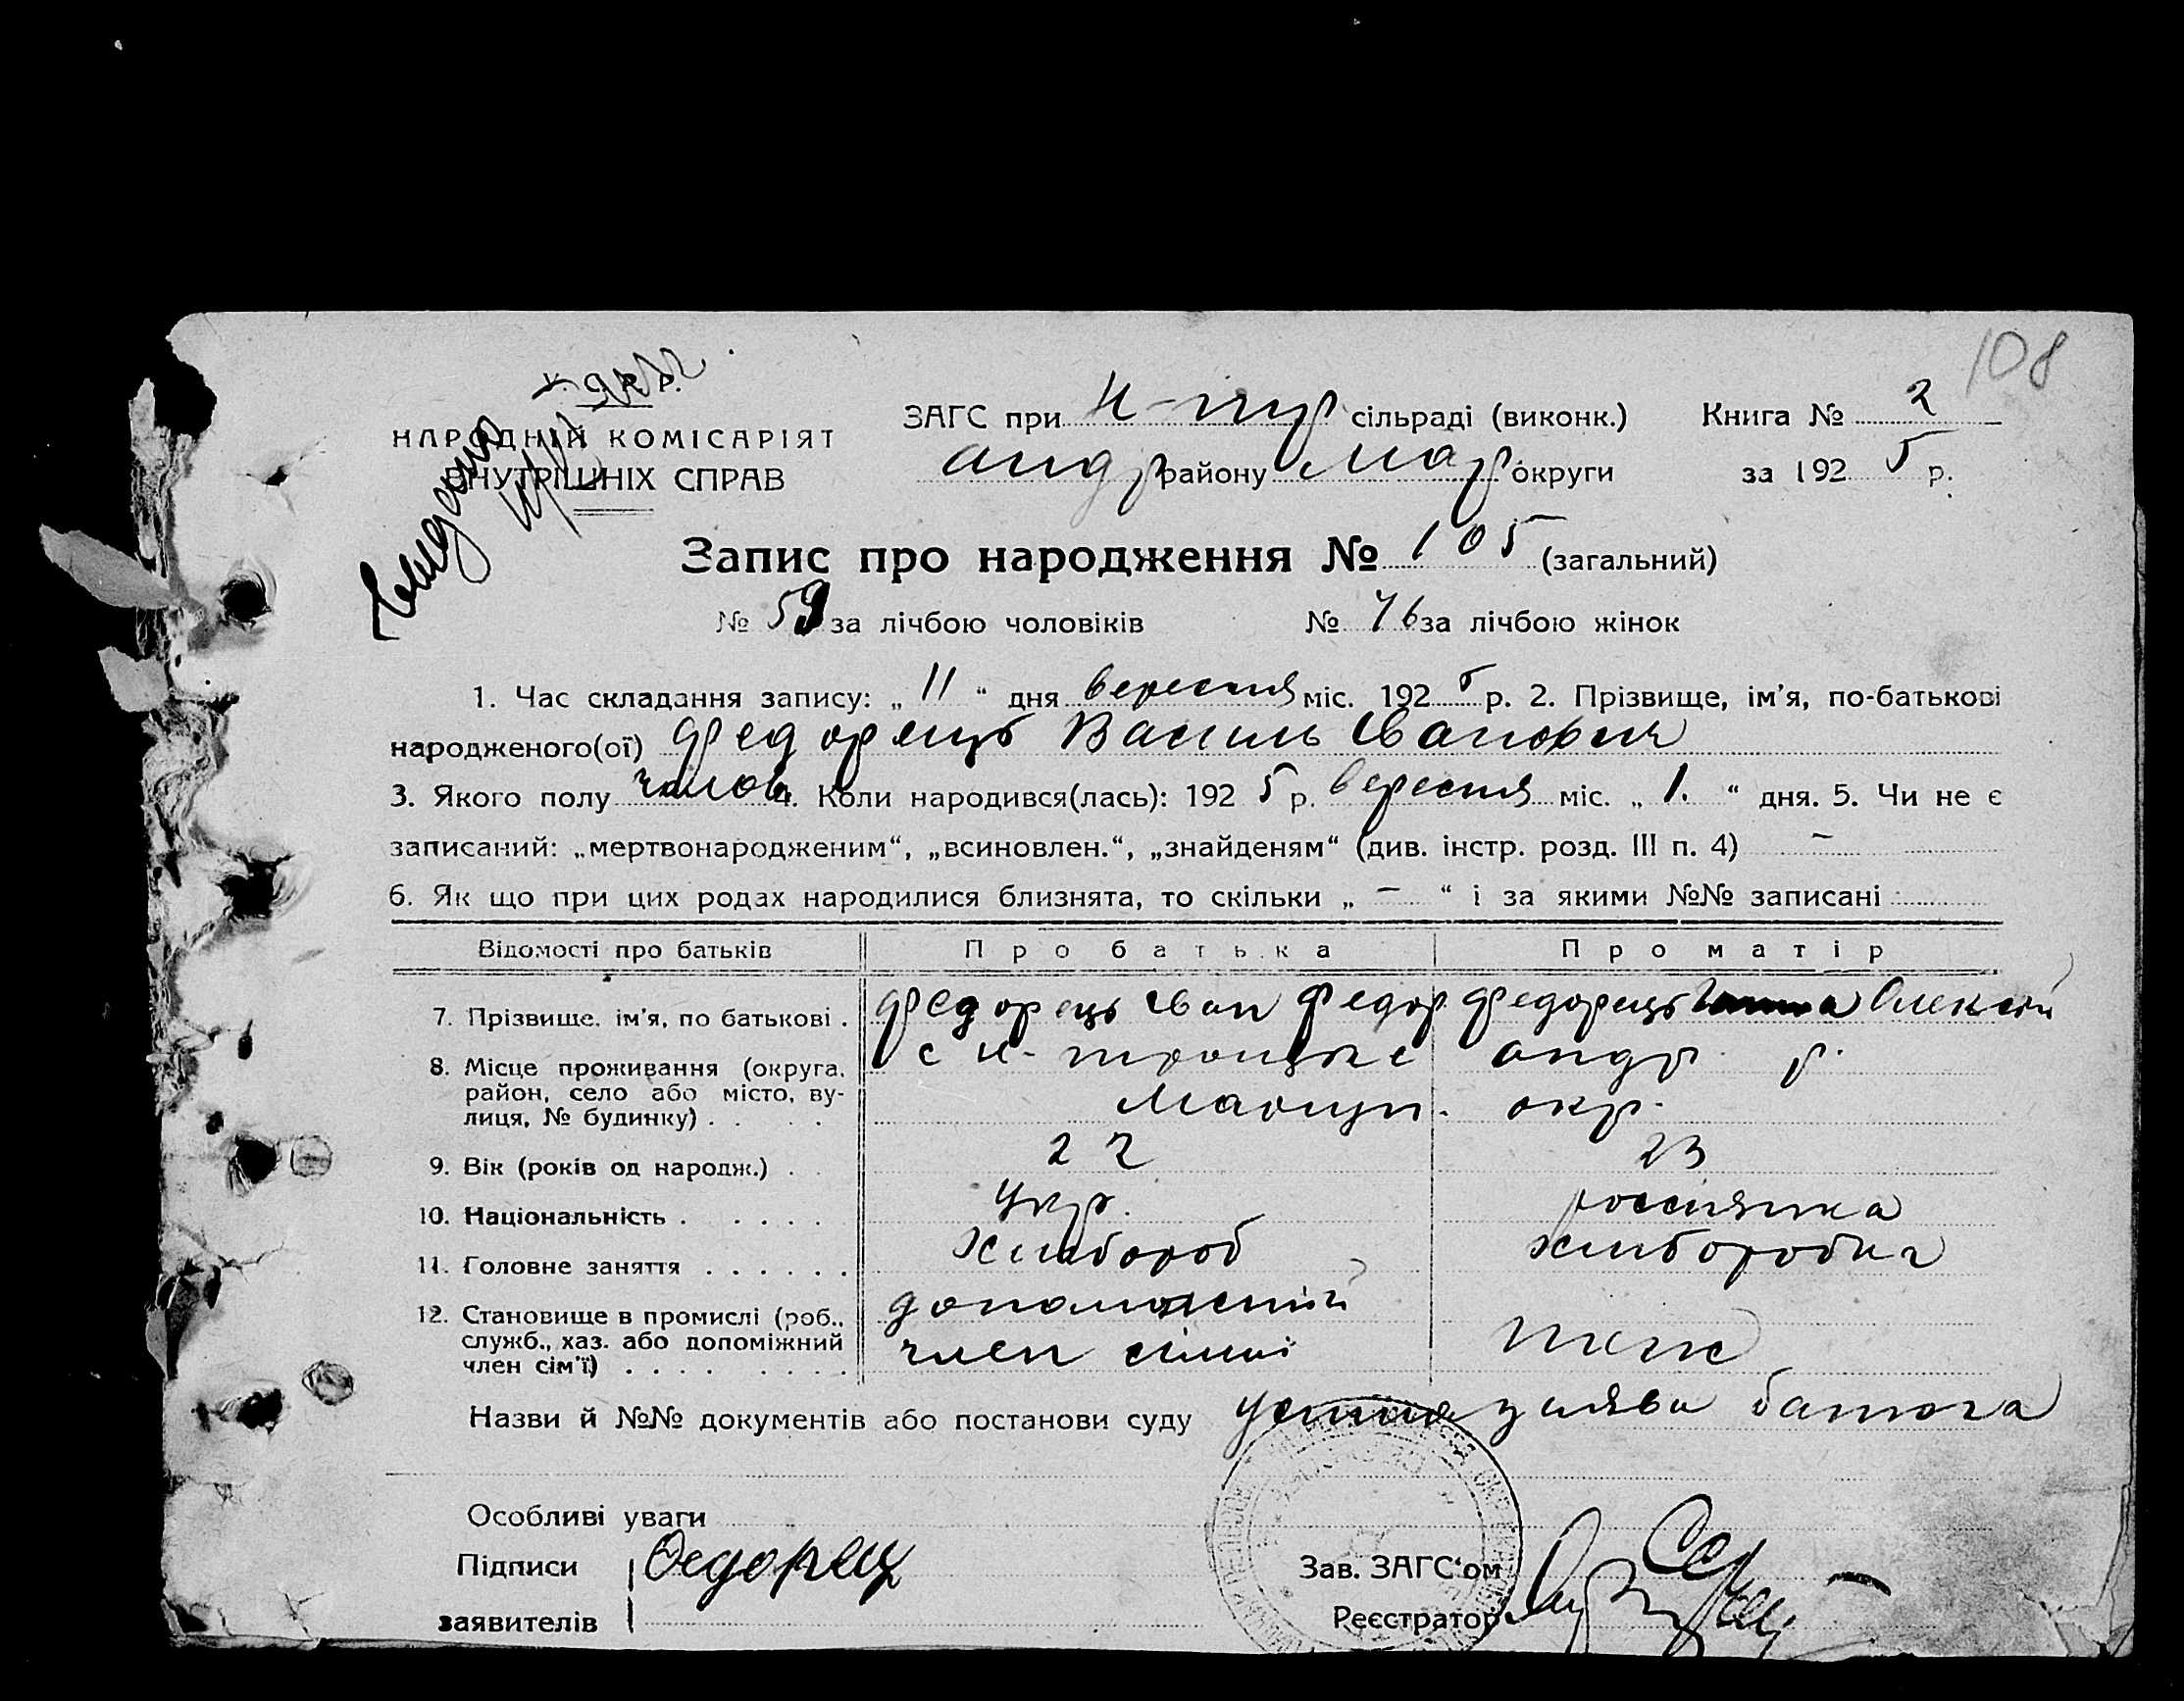 108
У. С. Р. Р.
НАРОДНІЙ КОМІСАРІЯТ
ВНУТРІШНІХ СПРАВ
ЗАГС при Н-тур сільраді (виконк.) Книга № 2
андр району Мар округи за 1925 р.
Запис про народження № 105 (загальний)
№ 59 за лічбою чоловіків № 46 за лічбою жінок
1. Час складання запису: „ 11 “ дня вересня міс. 1925 р. 2. Прізвище, ім’я, по-батькові
народженого(ої) Федорець Василь Іванович
3. Якого полу чолов. 4. Коли народився(лась): 1925 р. вересня міс. „ 1. “ дня. 5. Чи не є
записаний: „мертвонародженим“, „всиновлен.“, „знайденям“ (див. інстр. розд. III п. 4) —
6. Як що при цих родах народилися близнята, то скільки „ — “ і за якими №№ записані
Відомості про батьків Про батька Про матір
7. Прізвище, ім’я, по батькові . Федорець Іван Федор Федорець Олексій
8. Місце проживання (округа, с Н- троицьке андр. р.
район, село або місто, ву-
лиця, № будинку) . . . . Мариуп. окр.
9. Вік (років од народж.) . . 22 23
10. Національність . . . . . Укр. россіянка
11. Головне заняття . . . . . . Хлібороб хліборобка
12. Становище в промислі (роб., допоможний
служб., хаз. або допоміжний член сімьі теж
член сім’ї) . . . . . . . .
Назви й №№ документів або постанови суду устна заява батька
Особливі уваги
Підписи Федорец Зав. ЗАГС‘ом
заявителів Реєстратор